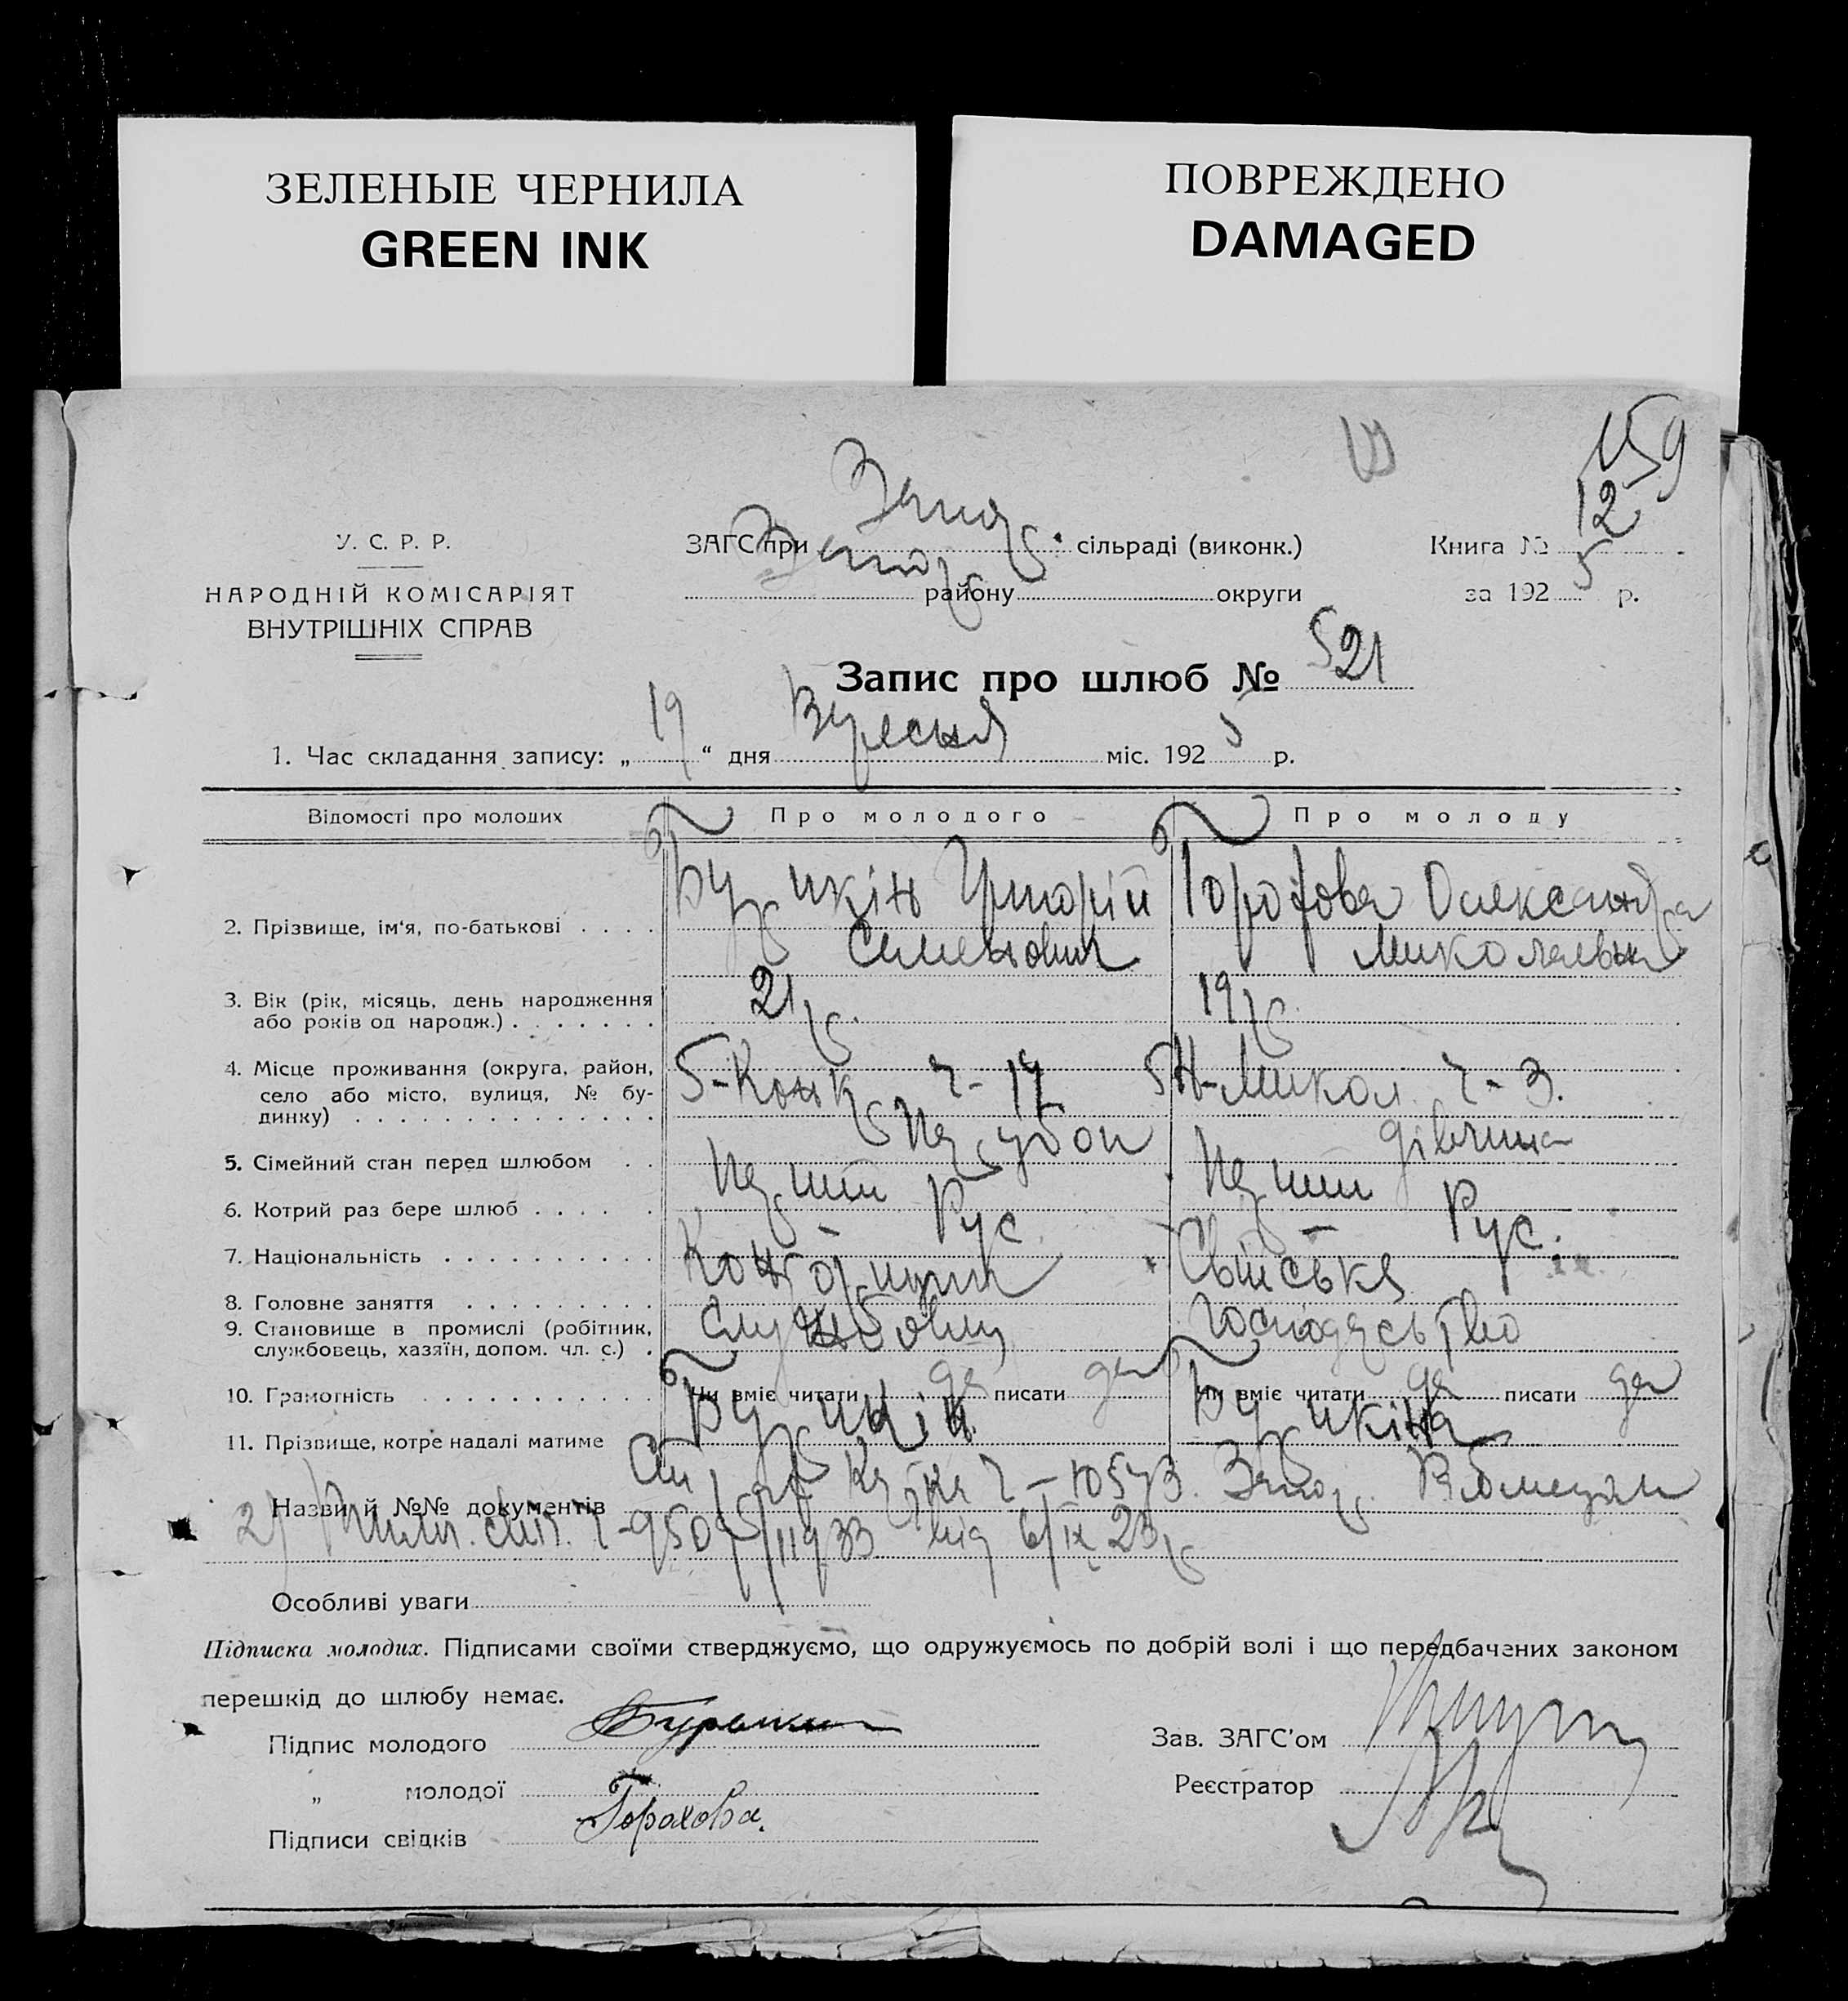 ЗЕЛЕНЫЕ ЧЕРНИЛА
GREEN INK
ПОВРЕЖДЕНО
DAMAGED
159
12
У. С. Р. Р.
НАРОДНІЙ КОМІСАРІЯТ
ВНУТРІШНІХ СПРАВ
ЗАГС при Запор. сільраді (виконк.)
Запор району округи
Книга № 12
за 192 5 р.
Запис про шлюб № 521
1. Час складання запису: „ 19 “ дня Вересня міс. 192 5 р.
Відомості про молодих Про молодого Про молоду
2. Прізвище, ім'я, по-батькові Бурикін Григорій Горохова Олександра
Семенович Миколаевна
3. Вік (рік, місяць, день народження 21 р. 19 р.
або років од народж.)
4. Місце проживання (округа, район, 5-Конк ч-17 5 Н-Микол. ч-3.
село або місто, вулиця, № бу-
динку)
5. Сімейний стан перед шлюбом Парубок дівчина
6. Котрий раз бере шлюб Перший Перший
7. Національність Рус. Рус.
8. Головне заняття Конторщик Свійське
9. Становище в промислі (робітник, Службовець господарство
службовець, хазяїн, допом. чл. с.)
10. Грамотність Чи вміє читати да писати да Чи вміє читати да писати да
11. Прізвище, котре надалі матиме Бурикін. Бурикіна
Назви й №№ документів ч-10573. Запор.
2) ч-9505/11933 від 6/IX 23 р
Особливі уваги
Підписка молодих. Підписами своїми стверджуємо, що одружуємось по добрій волі і що передбачених законом
перешкід до шлюбу немає.
Підпис молодого Бурыкин
„ молодої Горахова.
Підписи свідків
Зав. ЗАГС'ом
Реєстратор